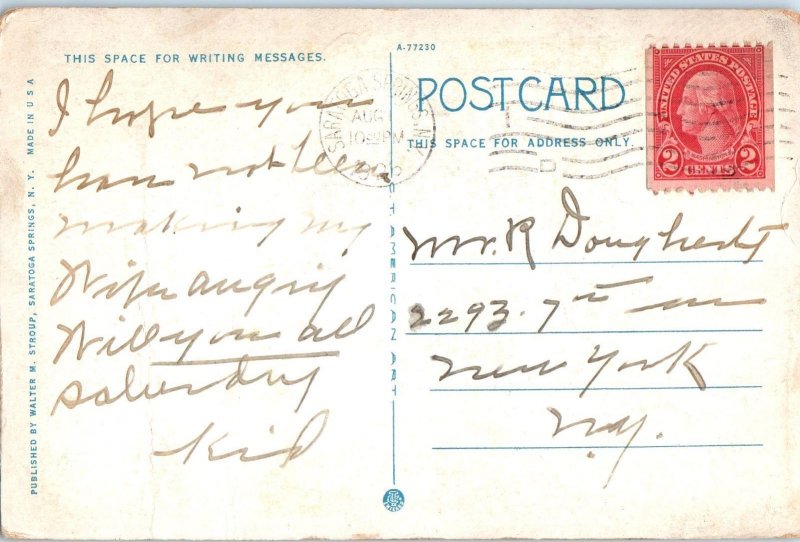 THIS SPACE FOR WRITING MESSAGES.
I hope you
have not been
making my
Wife angry
Will you all
saturday
Kid
PUBLISHED BY WALTER M. STROUP, SARATOGA SPRINGS, N. Y. MADE IN U S A
A-77230
POST CARD
THIS SPACE FOR ADDRESS ONLY.
SARATOGA SPRINGS, N.Y.
AUG
PM
UNITED STATES POSTAGE
WASHINGTON
2 CENTS 2
Mr. R Dougherty
2293. 7th
New York
N.Y.
AMERICAN ART